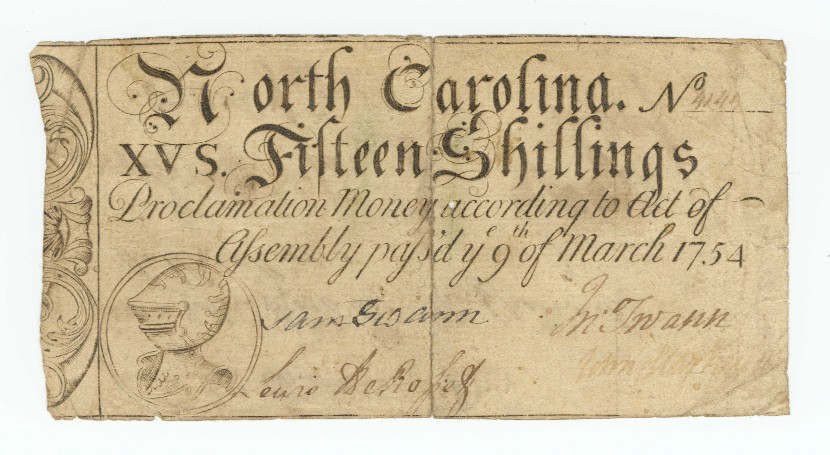 North Carolina. No
XVS. Fifteen Shillings
Proclamation Money according to Act of
Assembly pass'd ye 9th of March 1754
Sam Swann Jno Swann
Lewis DeRosset